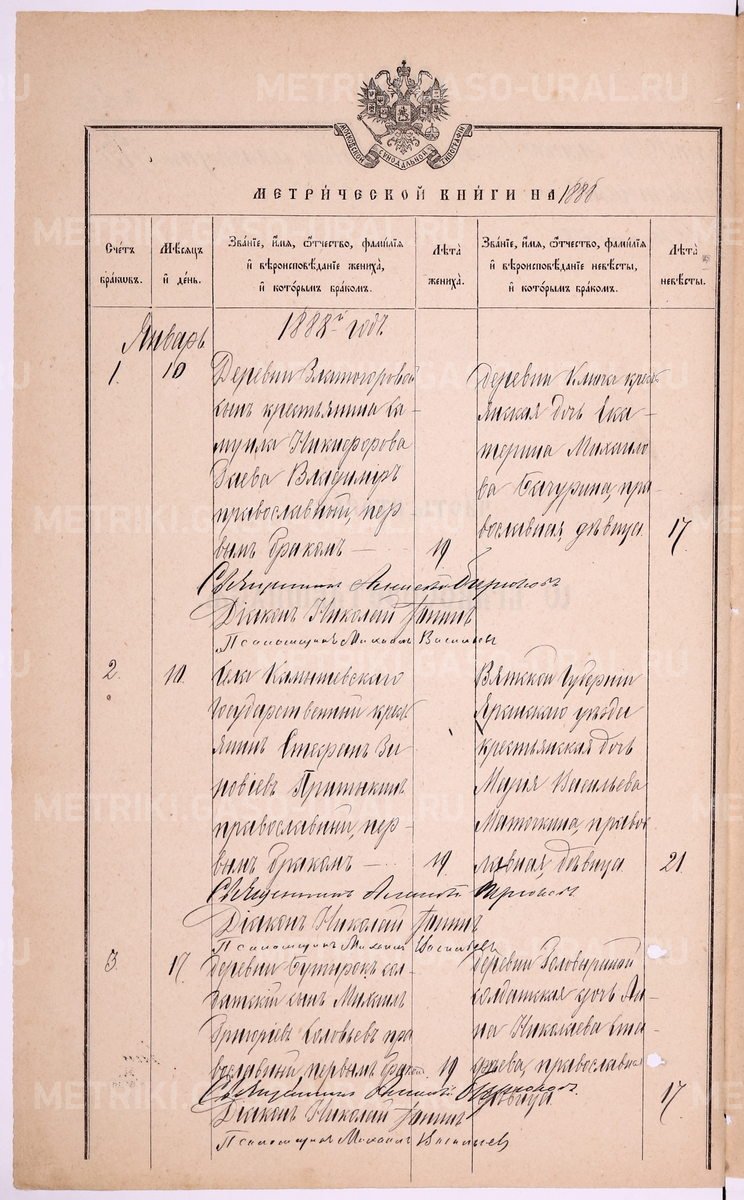 МОСКОВСКОЙ СѴНОДАЛЬНОЙ ТИПОГРАФІИ
МЕТРИ́ЧЕСКОЙ КНИ́ГИ НА 1888
Сче́тъ бра́ковъ.
Мѣ́сяцъ и҆ де́нь.
Зва́нїе, и҆́мѧ, ѻ҆́тчество, фамі́лїѧ и҆ вѣроисповѣ́данїе жениха̀, и҆ кото́рымъ бра́комъ.
Лѣ́та жениха̀.
Зва́нїе, и҆́мѧ, ѻ҆́тчество, фамі́лїѧ и҆ вѣроисповѣ́данїе невѣ́сты, и҆ кото́рымъ бра́комъ.
Лѣ́та невѣ́сты.
Январь 1888й годъ
1. 10
Деревни Златогоровой
сынъ крестьянина Са-
муила Никифорова
Заева Владимиръ
православный, пер
вымъ бракомъ — 19
Деревни Ключа крест
янская дочь Ека-
терина Михаило
ва Бачурина, пра
вославная дѣвица 17
Священникъ Алексѣй Бирюковъ
Діаконъ Николай
Псаломщикъ Михаилъ Васильевъ
2. 10.
Села Камышевскаго
государственный крест
янинъ Стефанъ Зи
новіевъ Притыкинъ
православный, пер-
вымъ бракомъ — 19
Вятской Губерніи
Яранскаго уѣзда
крестьянская дочь
Марія Васильева
Матокина, правос
лавная, дѣвица 21
Священникъ Алексѣй Бирюковъ
Діаконъ Николай
Псаломщикъ Михаилъ Васильевъ
3. 17.
Деревни Бутырокъ сол-
датскій сынъ Михаилъ
Григоріевъ Соловьевъ пра
вославный, первымъ браком 19
Деревни Головыриной
солдатская дочь Ан-
на Николаева
православная
дѣвица 17
Священникъ Алексѣй Бирюковъ
Діаконъ Николай
Псаломщикъ Михаилъ Васильевъ
METRIKI.GASO-URAL.RU